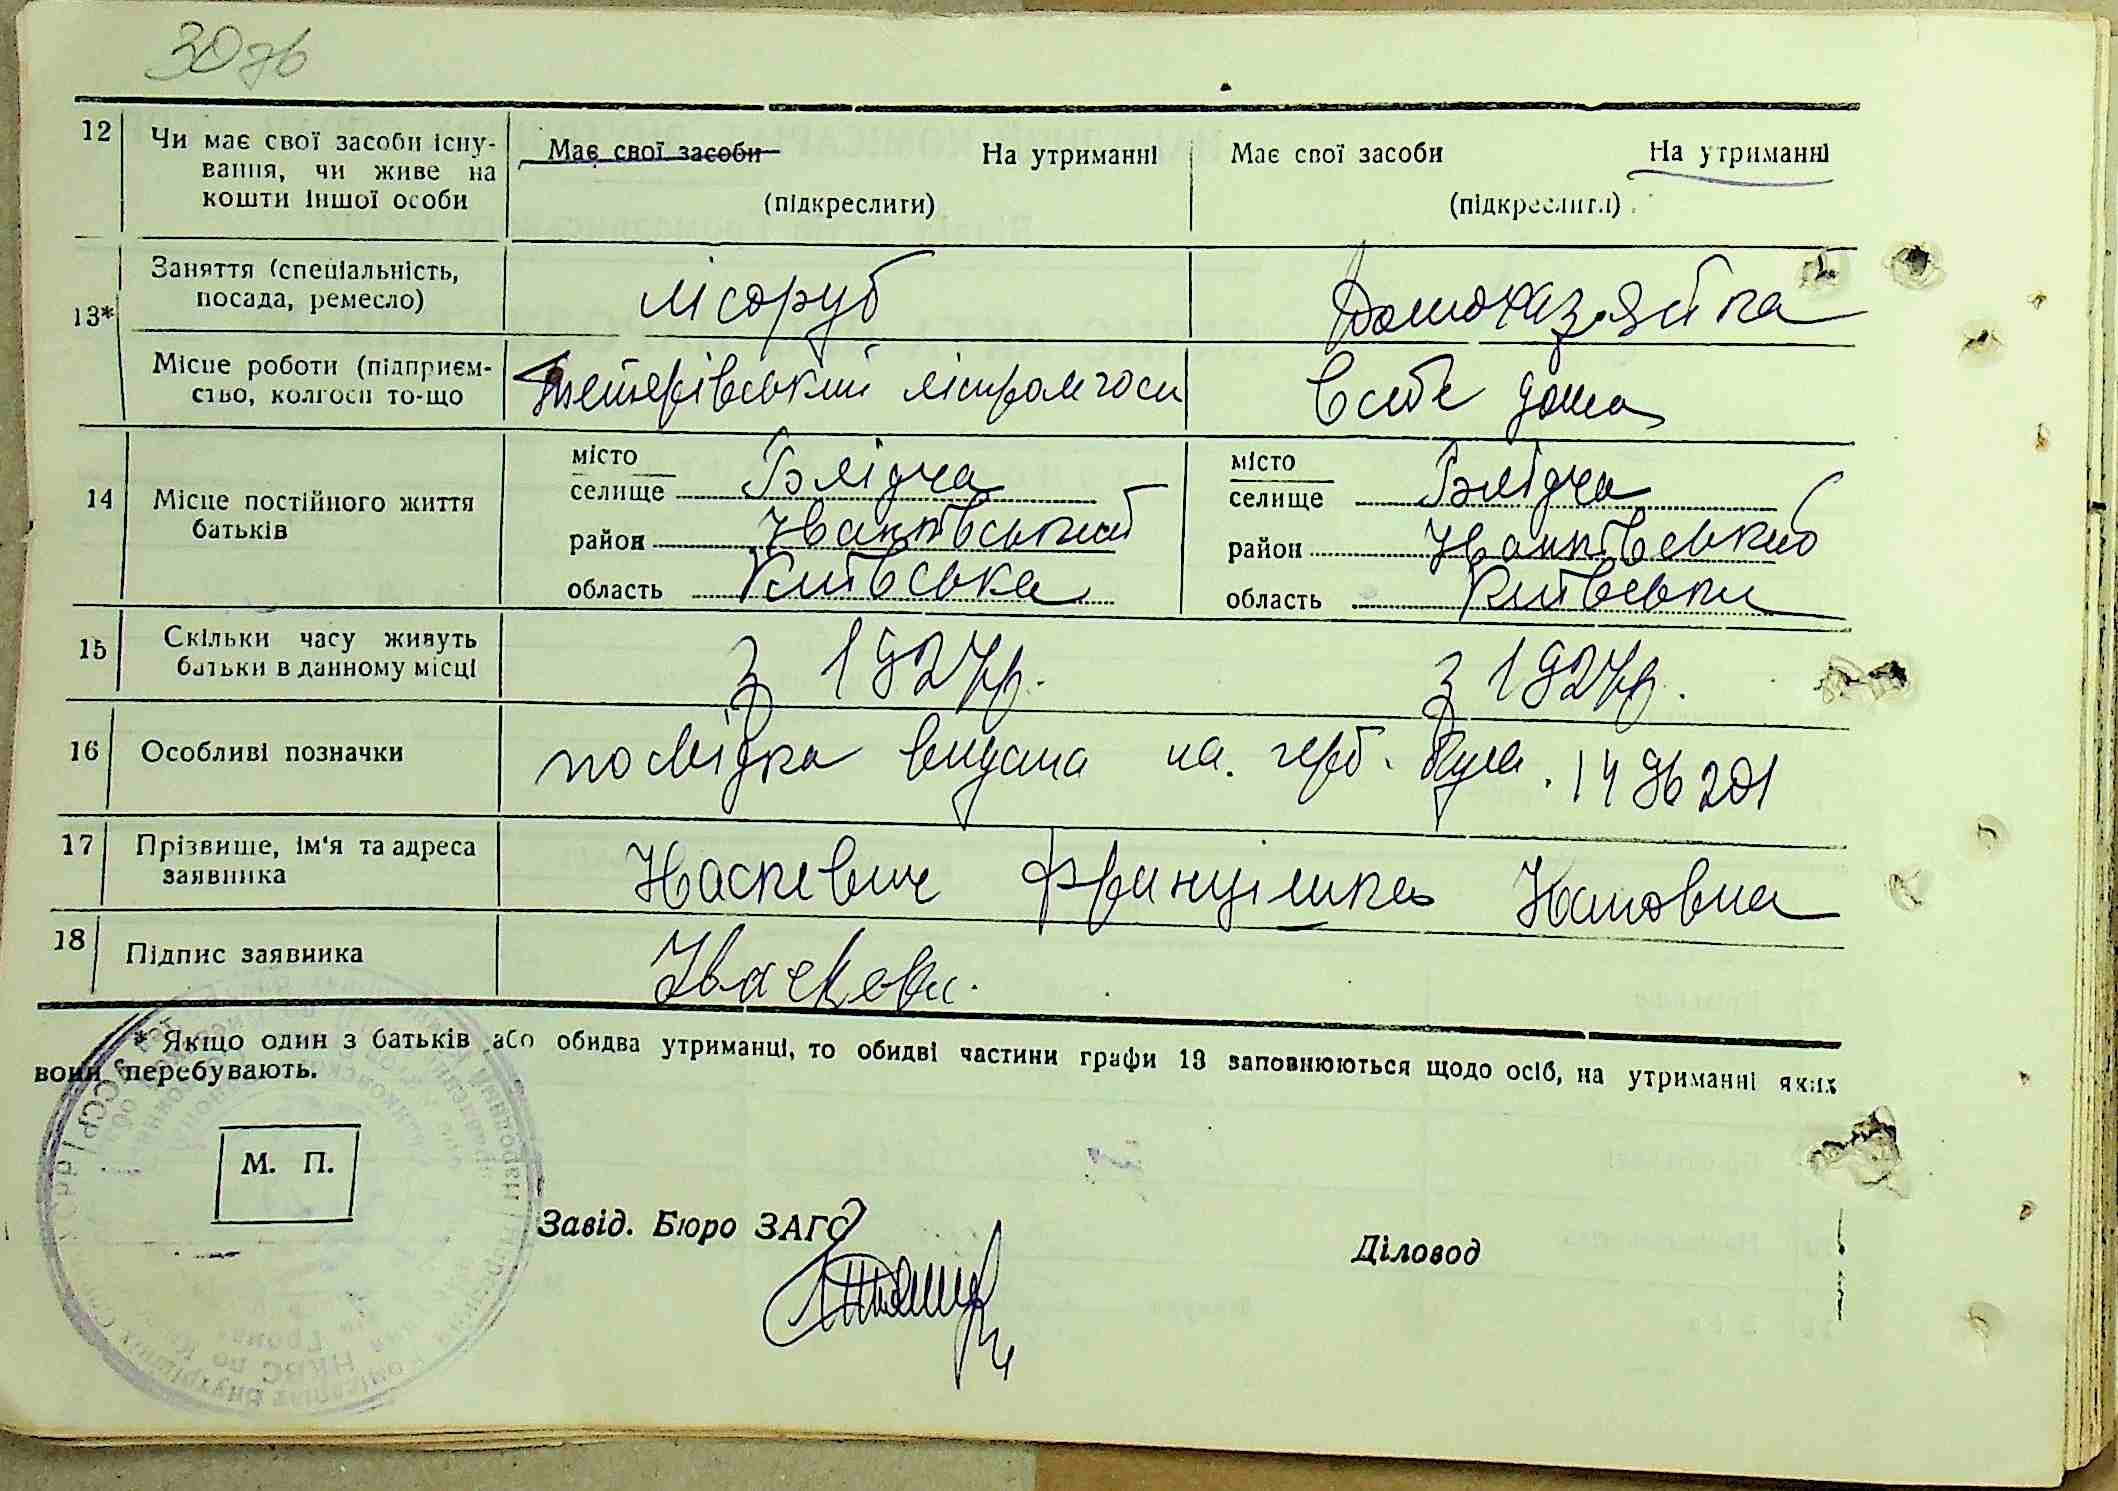 30 зв
12 Чи має свої засоби існу-
вання, чи живе на
кошти іншої особи
Має свої засоби На утриманні
(підкреслити)
Має свої засоби На утриманні
(підкреслити)
13*
Заняття (спеціальність,
посада, ремесло)
лісоруб
Домохазяйка
Місце роботи (підприєм-
ство, колгосп то-що
Тетерівський ліспромгосп
В себе дома
14 Місце постійного життя
батьків
місто
селище Блідча
район Іванківський
область Київська
місто
селище Блідча
район Іванківський
область Київська
15 Скільки часу живуть
батьки в данному місці
з 1927р.
з 1927р.
16 Особливі позначки
посвідка видана на герб.
17 Прізвище, ім'я та адреса
заявника
Іваскевич Францішка
18 Підпис заявника
* Якщо один з батьків або обидва утриманці, то обидві частини графи 13 заповнюються щодо осіб, на утриманні яких
вони перебувають.
М. П.
Завід. Бюро ЗАГС
Діловод